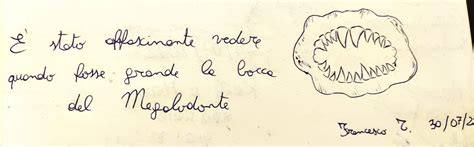 È stato affascinante vedere
quando fosse grande la bocca
del Megalodonte
Francesco T. 30/07/2